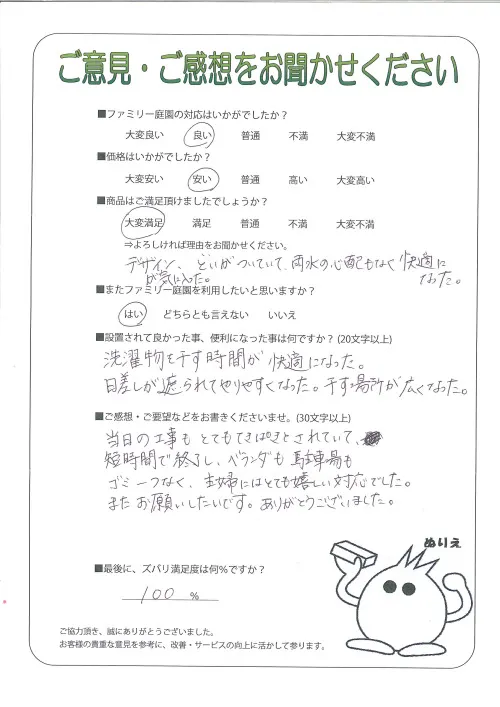 ご意見・ご感想をお聞かせください
■ファミリー庭園の対応はいかがでしたか?
大変良い 良い 普通 不満 大変不満
■価格はいかがでしたか?
大変安い 安い 普通 高い 大変高い
■商品はご満足頂けましたでしょうか?
大変満足 満足 普通 不満 大変不満
⇒よろしければ理由をお聞かせください。
デザイン、といがついていて、雨水の心配もなく快適に
が気に入った。 なった。
■またファミリー庭園を利用したいと思いますか?
はい どちらとも言えない いいえ
■設置されて良かった事、便利になった事は何ですか? (20文字以上)
洗濯物を干す時間が快適になった。
日差しが遮られてやりやすくなった。干す場所が広くなった。
■ご感想・ご要望などをお書きくださいませ。(30文字以上)
当日の工事もとてもてきぱきとされていて、
短時間で終了し、ベランダも馬車場も
ゴミ一つなく、主婦にはとても嬉しい対応でした。
またお願いしたいです。ありがとうございました。
ぬりえ
■最後に、ズバリ満足度は何%ですか?
100 %
ご協力頂き、誠にありがとうございました。
お客様の貴重な意見を参考に、改善・サービスの向上に活かして参ります。